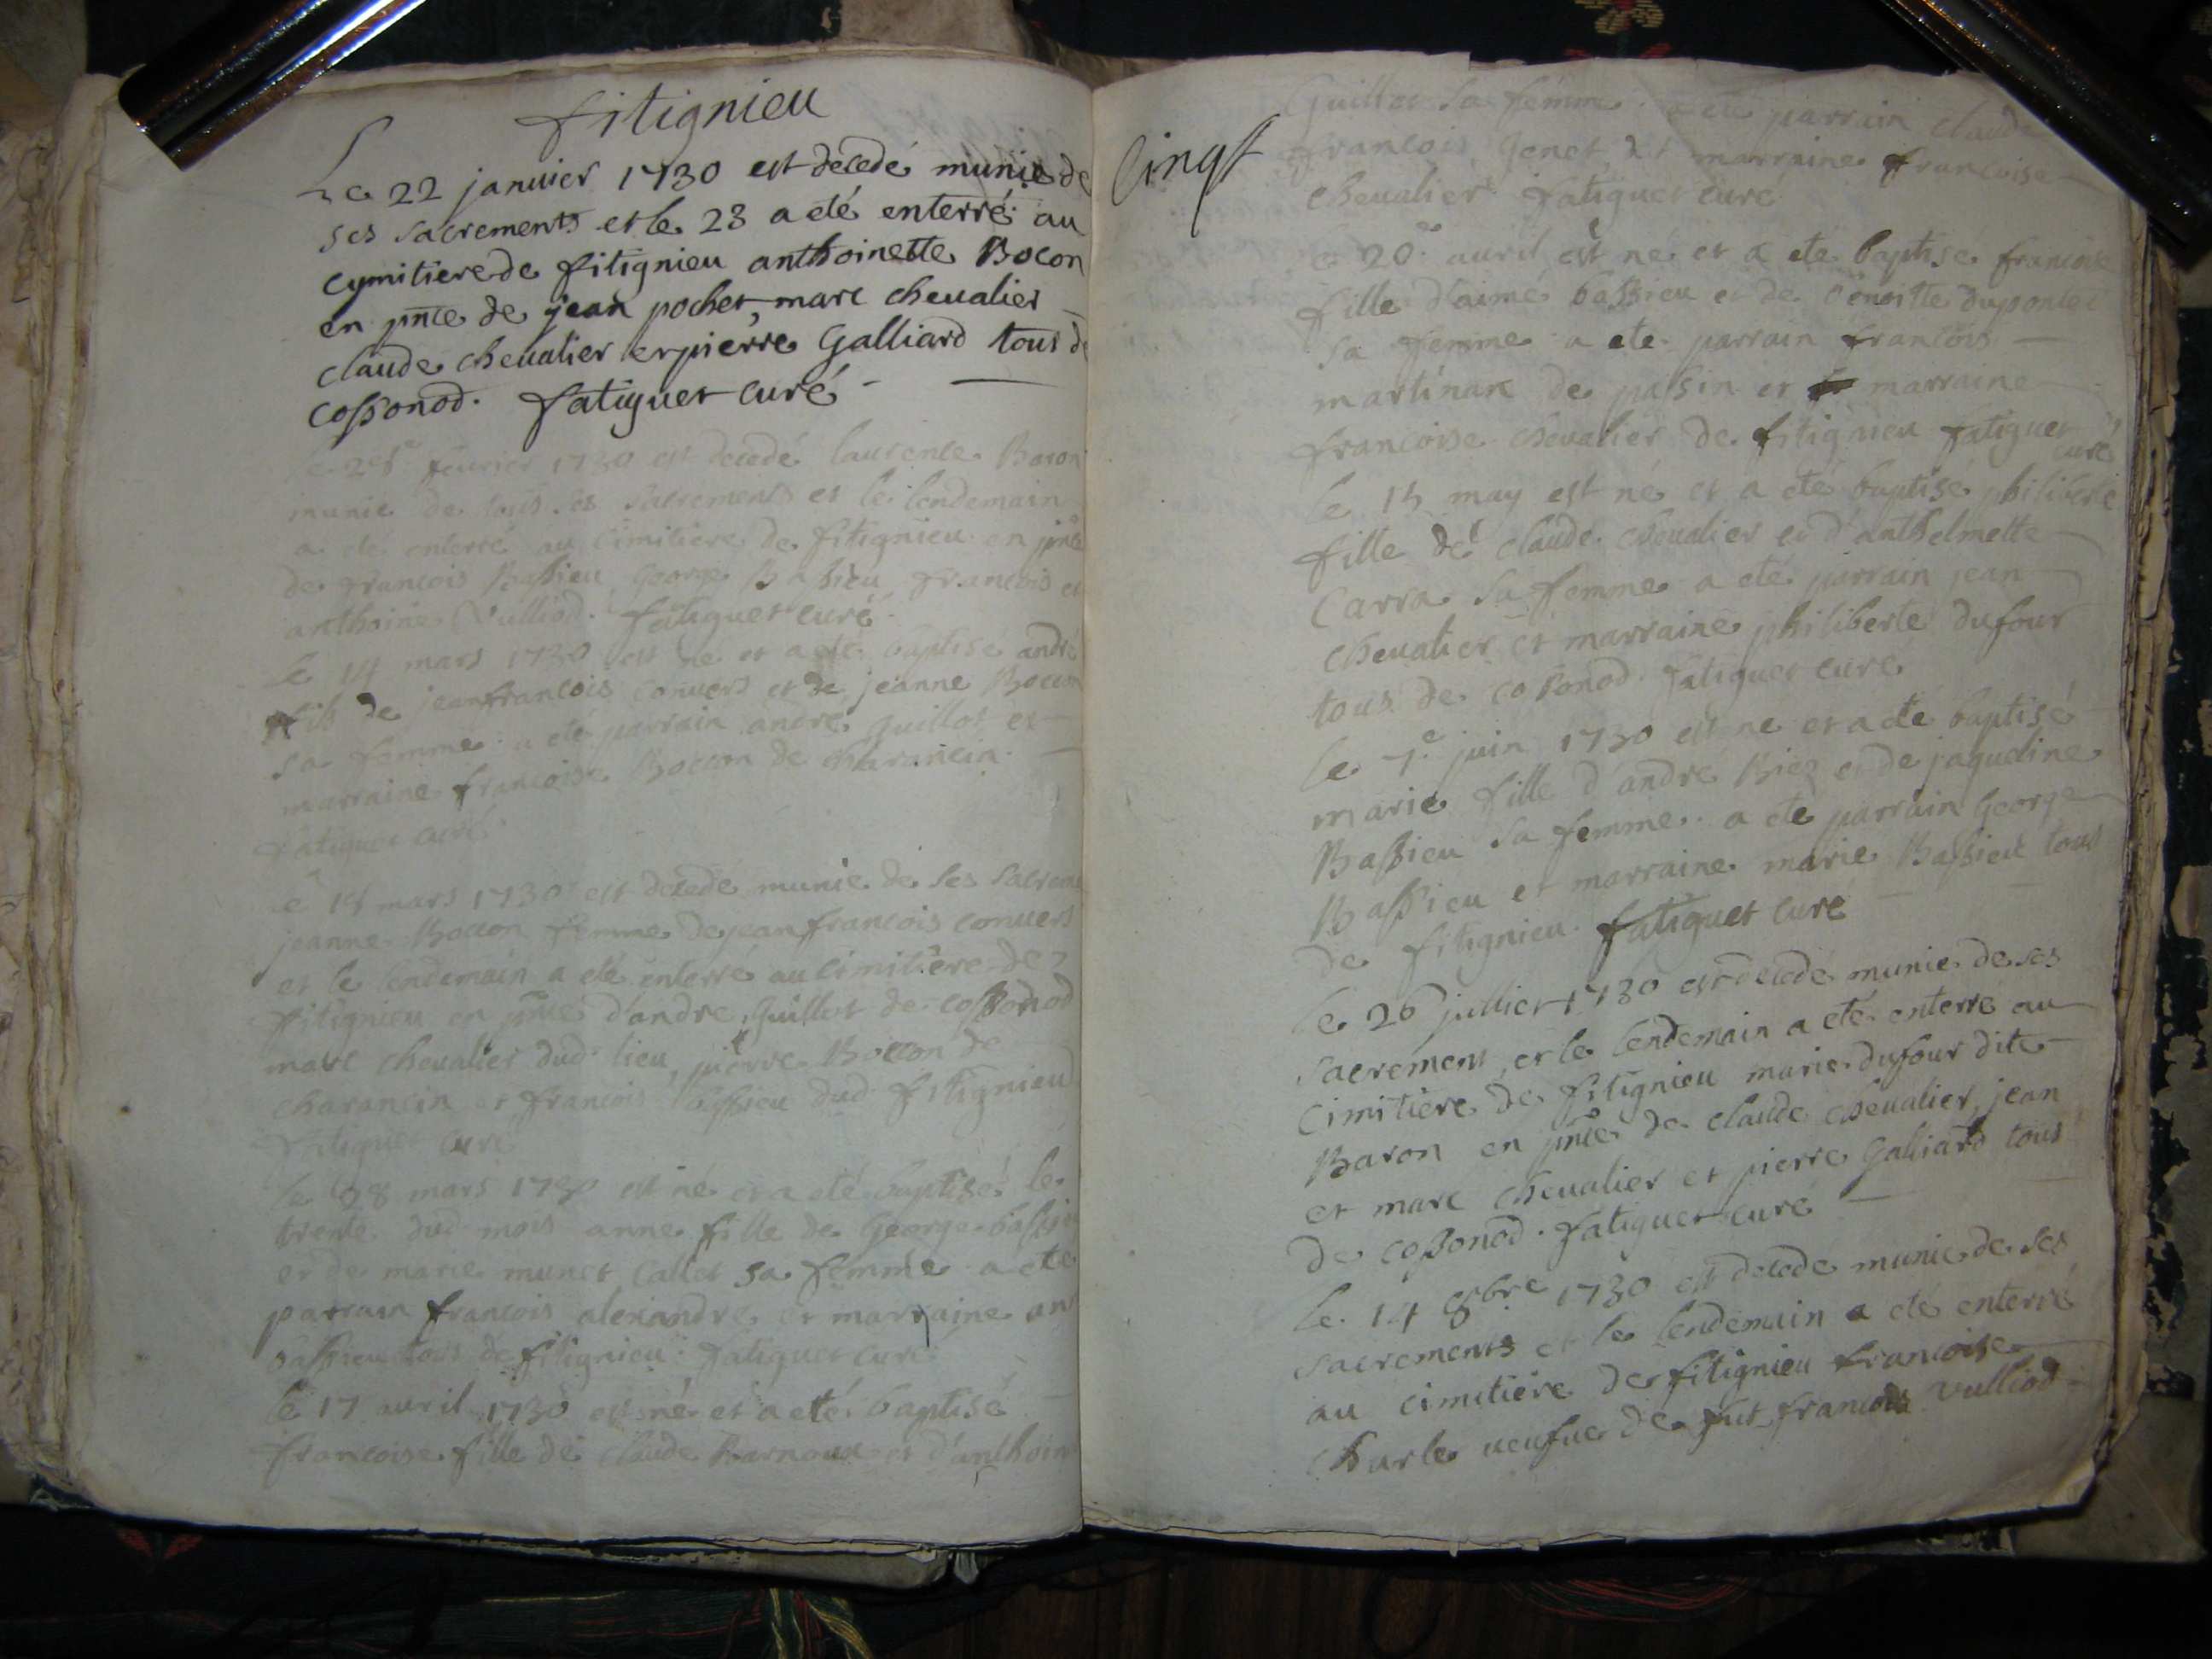 fitignieu
Le 22 januier 1730 est decedé munie de
ses sacrements et le 23 a eté enterré au
cymitiere de fitignieu anthoinette Bocon
en pnce de jean pochet, marc cheualier
claude cheualier et pierre Galliard tous de
cossonod. fatiguet curé
feurier 1730 est decedé laurence Boron
munie de tous ses sacrements et le lendemain
a eté enterré au cimitiere de fitignieu en pnce
de francois Bassieu George Bassieu francois et
anthoine Vulliod. fatiguet curé
le 14 mars 1730 est né et a eté baptisé andré
fils de jeanfrancois conuers et de jeanne Bocon
sa femme a eté parrain andré guillot et
marraine francoise Bocon de charancin.
fatiguet curé
le 18 mars 1730 est decedé munie de ses sacrem
jeanne Bocon femme de jeanfrancois conuers
et le lendemain a eté enterré au cimitiere de
fitignieu en pnce d'andre guillot de cossonod
marc cheualier dud. lieu, pierre Bocon de
charancin et francois bassieu dud. fitignieu
fatiguet curé
le 28 mars 1730 est né et a eté baptisé le
trente dud. mois anne fille de George bassieu
et de marie munet callet sa femme a eté
parrain francois alexandre et marraine an
bassieu tous de fitignieu. fatiguet curé
le 17 auril 1730 est né et a eté baptisé
francoise fille de claude Barnoux et d'anthoin
Cinqt
Guillot sa femme. a eté parrain claude
francois Genet et marraine francoise
cheualier fatiguet curé
le 20e auril est né et a eté baptise francoise
fille d'aimé bassieu et de benoitte duponte
sa femme a eté parrain francois
martinan de passin et marraine
francoise cheualier de fitignieu fatiguet
curé
le 15 may est né et a eté baptisé philiberte
fille de claude cheualier et d'anthelmette
Carra sa femme a eté parrain jean
cheualier et marraine philiberte dufour
tous de cossonod. fatiguet curé
le 7e juin 1730 est né et a eté baptisé
marie fille d'andré Biez et de jaqueline
Bassieu sa femme. a eté parrain George
Bassieu et marraine marie Bassieu tous
de fitignieu. fatiguet curé
le 26 juillet 1730 est decedé munie de ses
sacrement, et le lendemain a eté enterré au
cimitiere de fitignieu marie dufour dite
Baron en pnce de claude cheualier, jean
et marc cheualier et pierre Galliard tous
de cossonod. fatiguet curé
le 14 8bre 1730 est decedé munie de ses
sacrements et le lendemain a eté enterré
au cimitiere de fitignieu francoise
charle ueufue de fut francois Vulliod